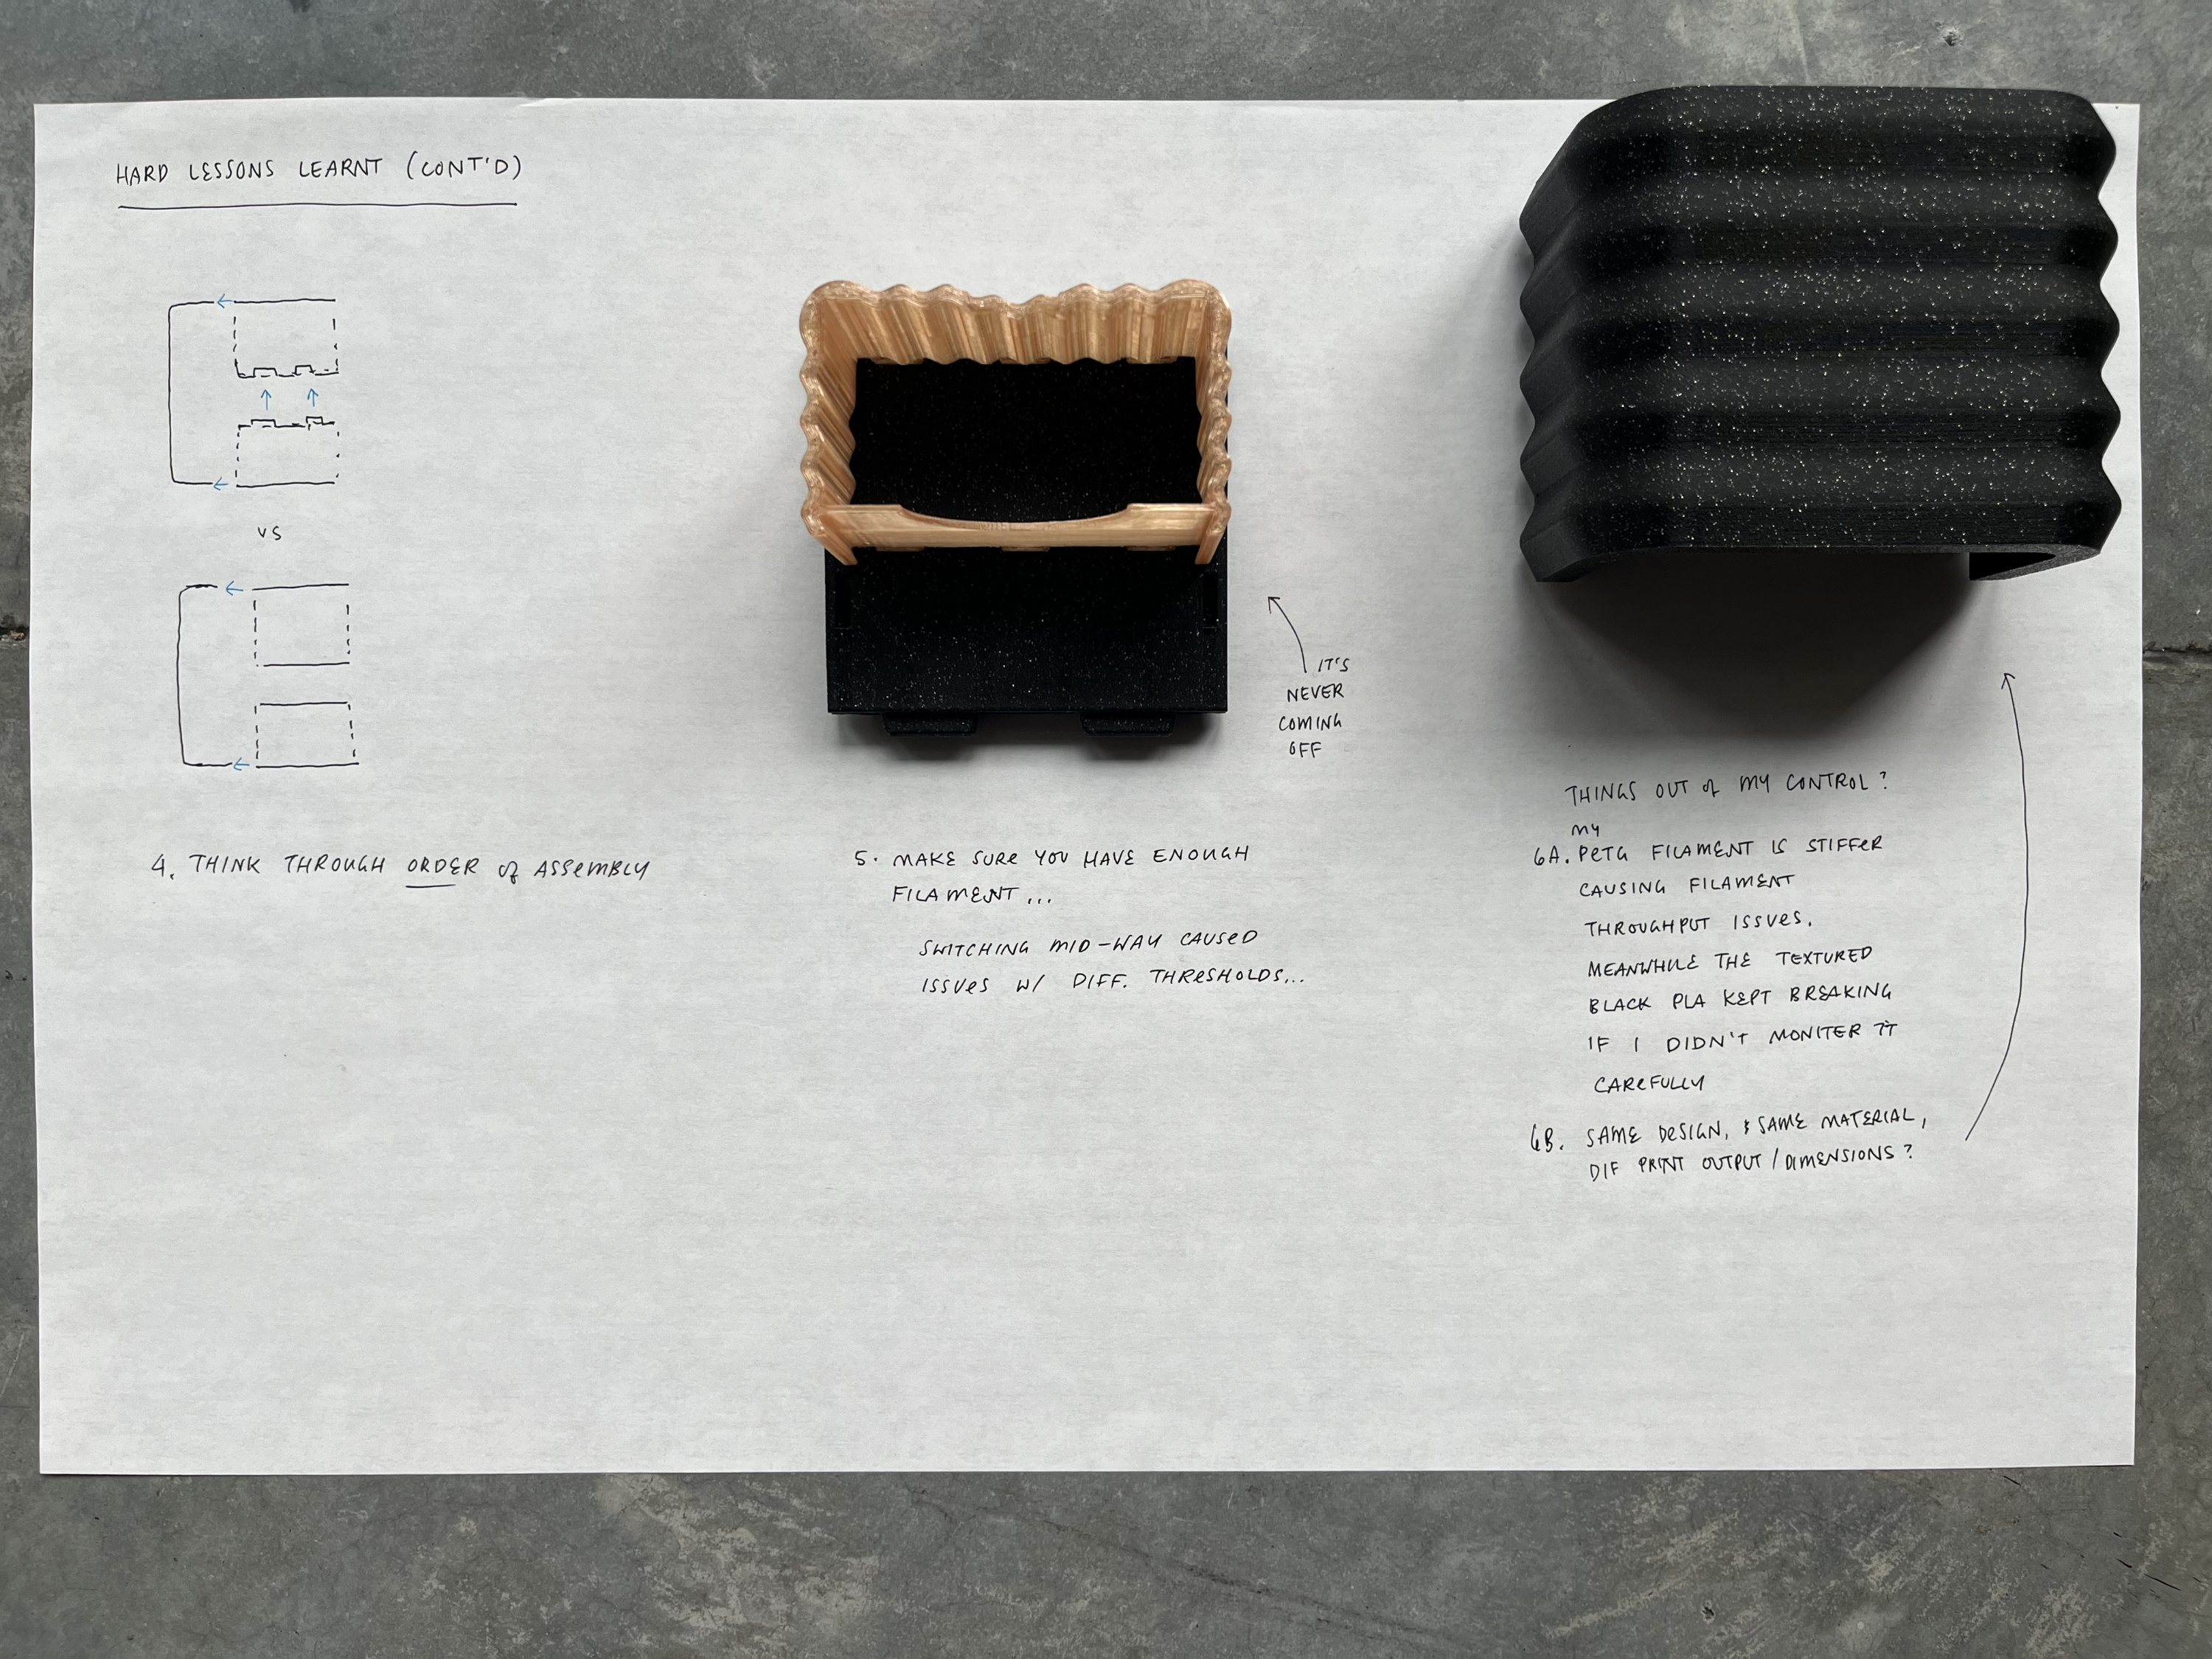 HARD LESSONS LEARNT (CONT'D)
VS
4. THINK THROUGH ORDER of ASSEMBLY
IT'S
NEVER
COMING
OFF
5. MAKE SURE YOU HAVE ENOUGH
FILAMENT...
SWITCHING MID-WAY CAUSED
ISSUES W/ DIFF. THRESHOLDS...
THINGS OUT of MY CONTROL?
MY
6A. PETG FILAMENT IS STIFFER
CAUSING FILAMENT
THROUGHPUT ISSUES.
MEANWHILE THE TEXTURED
BLACK PLA KEPT BREAKING
IF I DIDN'T MONITER IT
CAREFULLY
6B. SAME DESIGN, & SAME MATERIAL,
DIF PRINT OUTPUT/DIMENSIONS?